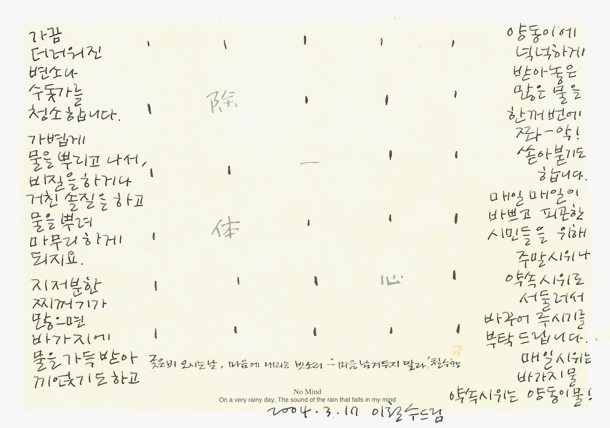 가끔
더러워진
변소나
수돗가를
청소합니다.
가볍게
물을 뿌리고 나서,
비질을하거나
거친 솔질을 하고
물을 뿌려
마무리하게
되지요.
지저분한
찌꺼기가
많으면
바가지에
물을가득받아
끼얹기도하고
양동이에
넉넉하게
받아놓은
많은 물을
한꺼번에
쫘-악!
쏟아붇기도
합니다.
매일매일이
바쁘고 피곤한
시민들을 위해
주말시위나
약속시위로
서둘러서
바꾸어 주시기를
부탁드립니다.
매일시위는
바가지물
약속시위는 양동이물!
除
一
体
心
궂은비 오시는날, 마음에 내리는 빗소리
No Mind
On a very rainy day, The sound of the rain that falls in my mind
2004.3.17 이철수드림